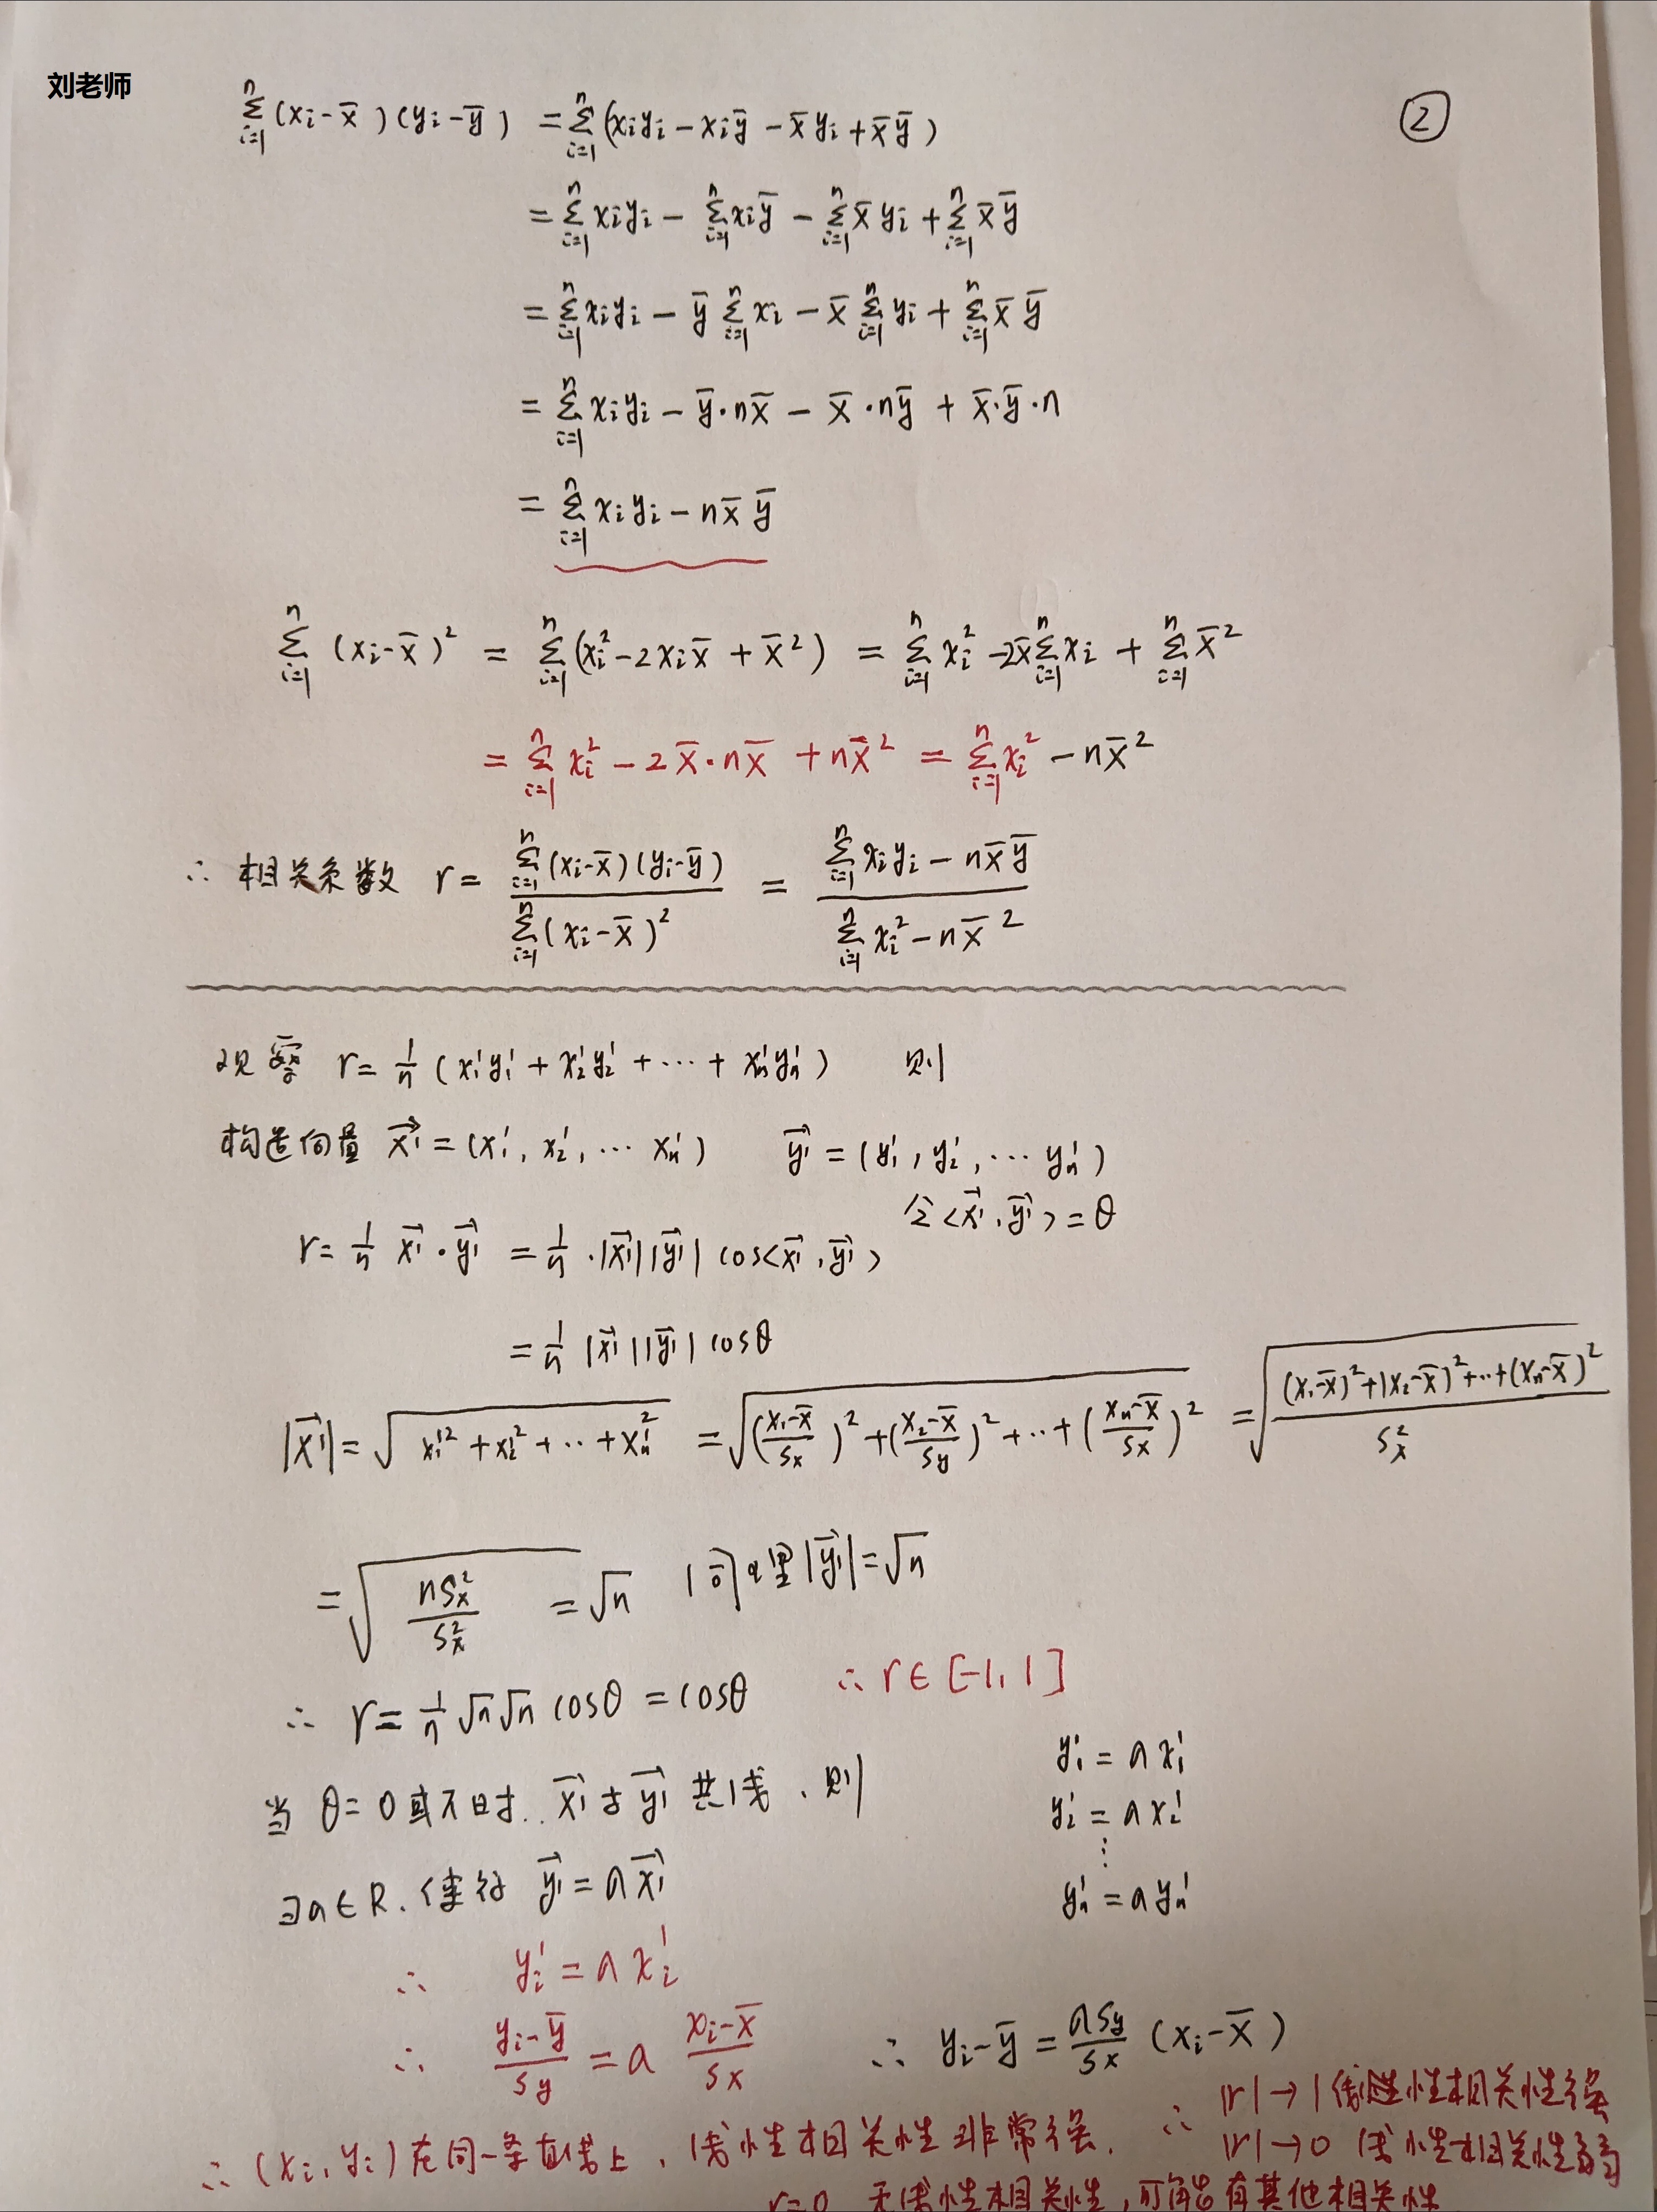 刘老师
②
$\sum_{i=1}^{n}(x_i-\bar{x})(y_i-\bar{y}) = \sum_{i=1}^{n}(x_iy_i-x_i\bar{y}-\bar{x}y_i+\bar{x}\bar{y})$
$= \sum_{i=1}^{n}x_iy_i - \sum_{i=1}^{n}x_i\bar{y} - \sum_{i=1}^{n}\bar{x}y_i + \sum_{i=1}^{n}\bar{x}\bar{y}$
$= \sum_{i=1}^{n}x_iy_i - \bar{y}\sum_{i=1}^{n}x_i - \bar{x}\sum_{i=1}^{n}y_i + \sum_{i=1}^{n}\bar{x}\bar{y}$
$= \sum_{i=1}^{n}x_iy_i - \bar{y}\cdot n\bar{x} - \bar{x}\cdot n\bar{y} + \bar{x}\cdot\bar{y}\cdot n$
$= \sum_{i=1}^{n}x_iy_i - n\bar{x}\bar{y}$
$\sum_{i=1}^{n}(x_i-\bar{x})^2 = \sum_{i=1}^{n}(x_i^2-2x_i\bar{x}+\bar{x}^2) = \sum_{i=1}^{n}x_i^2-2\bar{x}\sum_{i=1}^{n}x_i+\sum_{i=1}^{n}\bar{x}^2$
$= \sum_{i=1}^{n}x_i^2-2\bar{x}\cdot n\bar{x}+n\bar{x}^2 = \sum_{i=1}^{n}x_i^2-n\bar{x}^2$
∴ 相关系数 $r = \frac{\sum_{i=1}^{n}(x_i-\bar{x})(y_i-\bar{y})}{\sum_{i=1}^{n}(x_i-\bar{x})^2} = \frac{\sum_{i=1}^{n}x_iy_i-n\bar{x}\bar{y}}{\sum_{i=1}^{n}x_i^2-n\bar{x}^2}$
观察 $r=\frac{1}{n}(x_1'y_1'+x_2'y_2'+\cdots+x_n'y_n')$ 则
构造向量 $\vec{x'}=(x_1',x_2',\cdots x_n')$ $\vec{y'}=(y_1',y_2',\cdots y_n')$
令$<\vec{x'},\vec{y'}>=\theta$
$r=\frac{1}{n}\vec{x'}\cdot\vec{y'}=\frac{1}{n}\cdot|\vec{x'}||\vec{y'}|\cos<\vec{x'},\vec{y'}>$
$=\frac{1}{n}|\vec{x'}||\vec{y'}|\cos\theta$
$|\vec{x'}|=\sqrt{x_1'^2+x_2'^2+\cdots+x_n'^2}=\sqrt{(\frac{x_1-\bar{x}}{s_x})^2+(\frac{x_2-\bar{x}}{s_y})^2+\cdots+(\frac{x_n-\bar{x}}{s_x})^2}=\sqrt{\frac{(x_1-\bar{x})^2+(x_2-\bar{x})^2+\cdots+(x_n-\bar{x})^2}{s_x^2}}$
$=\sqrt{\frac{ns_x^2}{s_x^2}}=\sqrt{n}$ 同理$|\vec{y'}|=\sqrt{n}$
∴ $r=\frac{1}{n}\sqrt{n}\sqrt{n}\cos\theta=\cos\theta$ ∴ $r\in[-1,1]$
当 $\theta=0$或$\pi$时. $\vec{x'}$与$\vec{y'}$共线, 则
$y_1'=ax_1'$
$y_2'=ax_2'$
⋮
$y_n'=ay_n'$
$\exists a\in R$. 使得 $\vec{y'}=a\vec{x'}$
∴ $y_i'=ax_i'$
∴ $\frac{y_i-\bar{y}}{s_y}=a\frac{x_i-\bar{x}}{s_x}$ ∴ $y_i-\bar{y}=\frac{as_y}{s_x}(x_i-\bar{x})$
∴ $(x_i,y_i)$在同一条直线上, 线性相关性非常强.
∴ $|r|\to1$ 线性相关性强
$|r|\to0$ 线性相关性弱
$r=0$ 无线性相关性, 可能有其他相关性